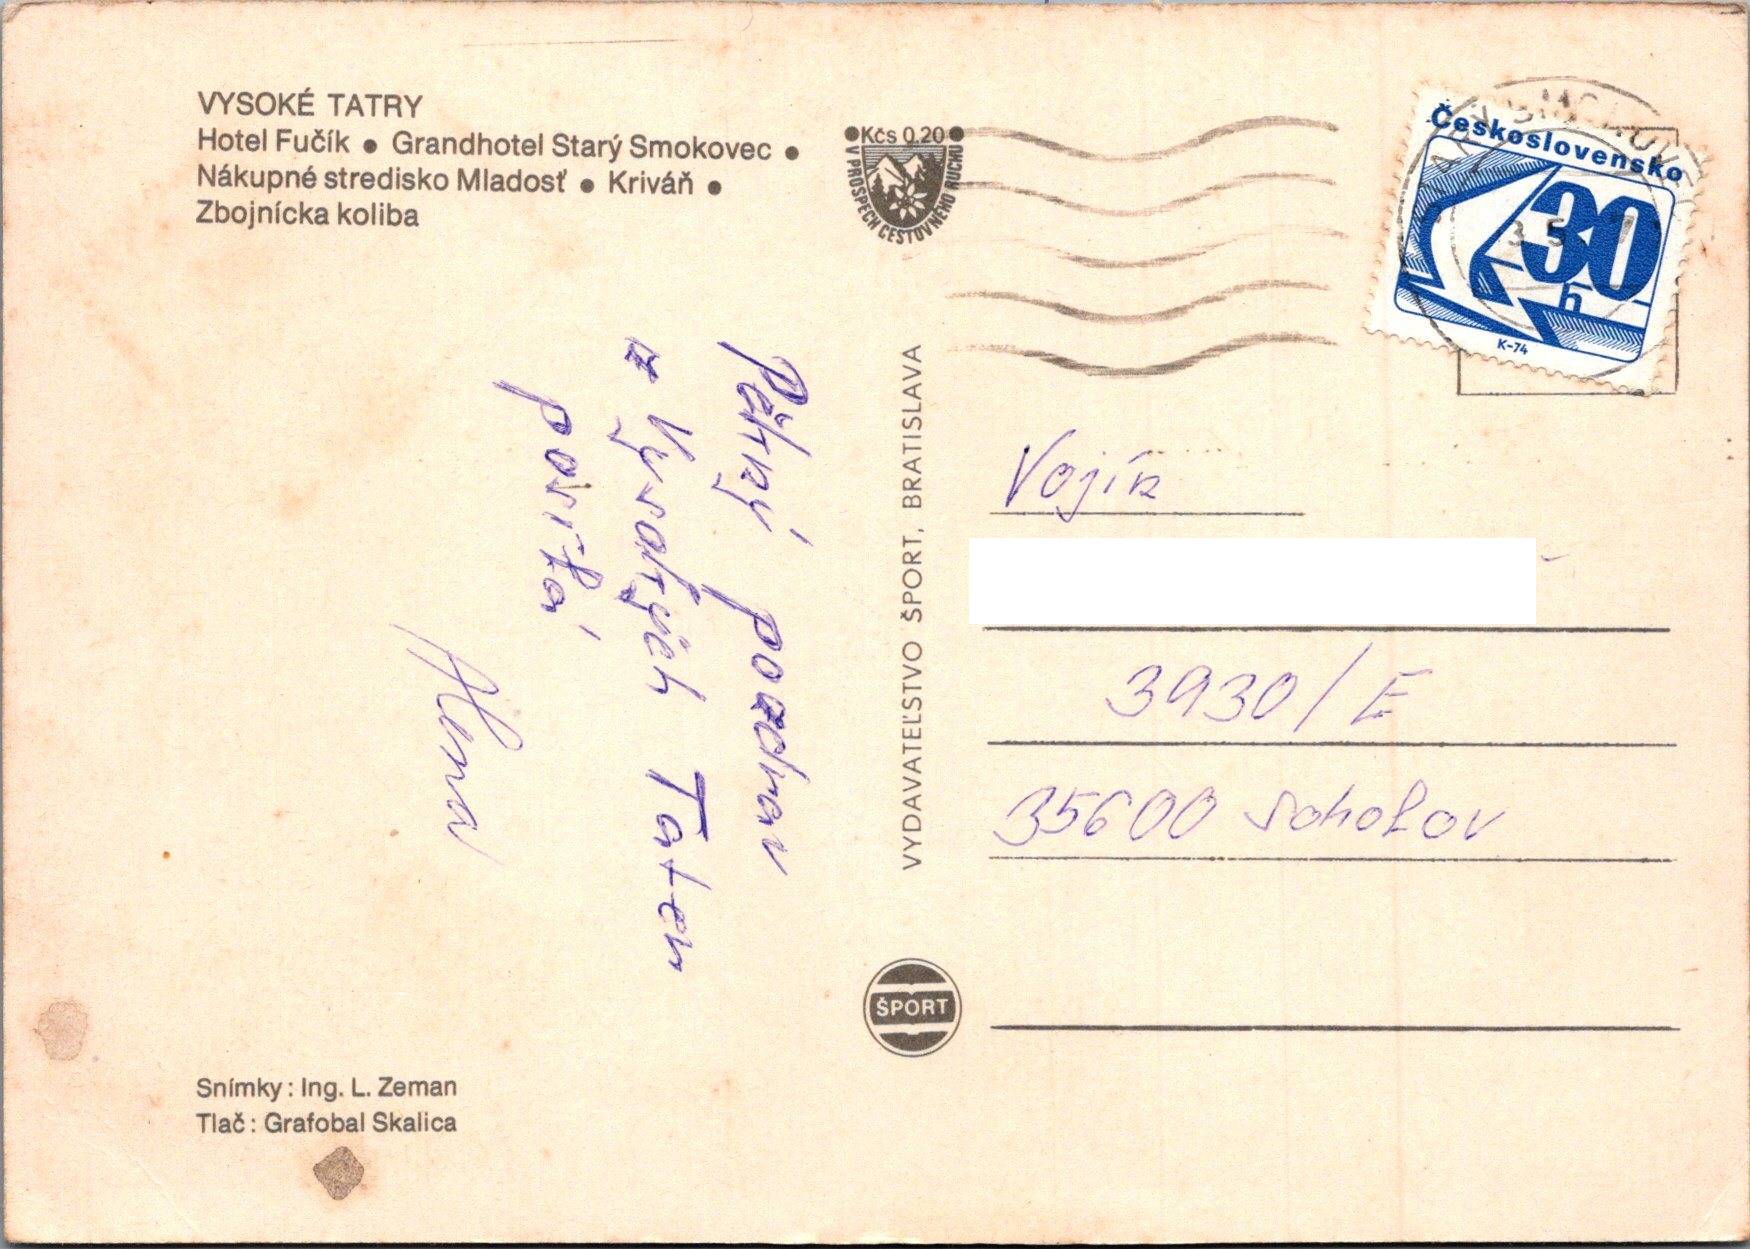 VYSOKÉ TATRY
Hotel Fučík ● Grandhotel Starý Smokovec ●
Nákupné stredisko Mladosť ● Kriváň ●
Zbojnícka koliba
●Kčs 0.20●
V PROSPECH CESTOVNÉHO RUCHU
Československo
30
h
K-74
Pěkný pozdrav
z Vysokých Tater
posílá
Alena
VYDAVATEĽSTVO ŠPORT, BRATISLAVA
Vojín
3930/E
35600 Sokolov
ŠPORT
Snímky: Ing. L. Zeman
Tlač: Grafobal Skalica